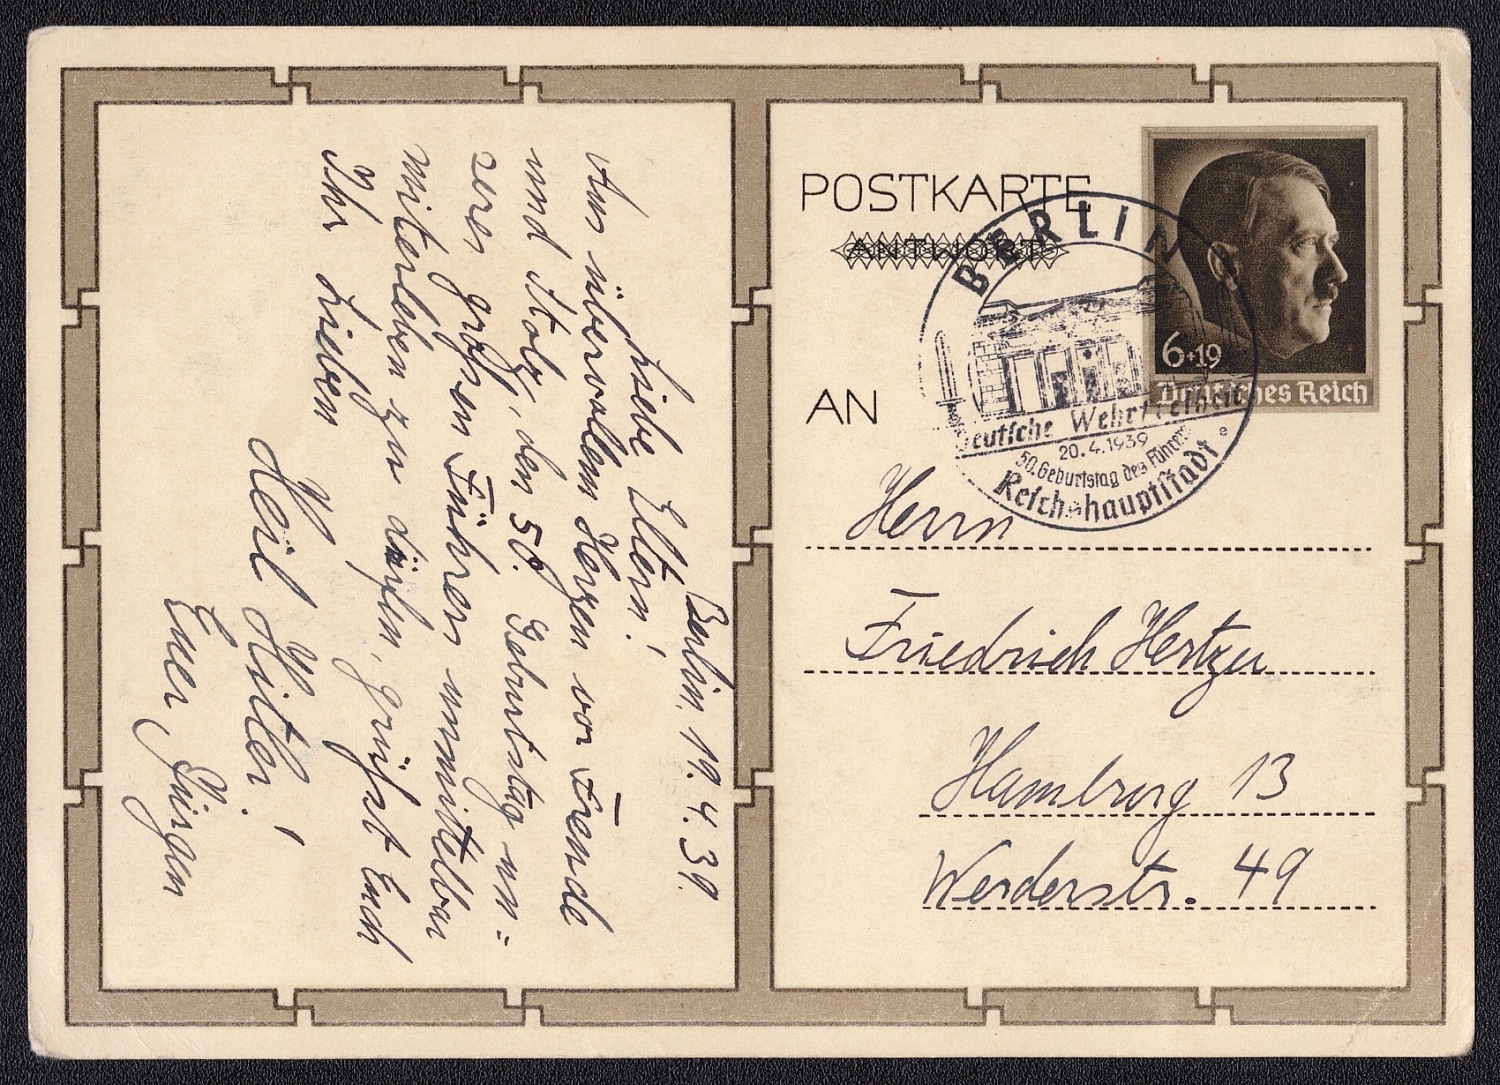 Berlin, 19.4.39.
Liebe Eltern!
Aus übervollem Herzen vor Freude
und Stolz, den 50. Geburtstag un=
seres großen Führers unmittelbar
miterleben zu dürfen, grüßt Euch
Ihr Lieben
Heil Hitler!
Euer Jürgen
POSTKARTE
ANTWORT
AN
6+19
Deutsches Reich
BERLIN
Deutsche Wehrfreiheit
20.4.1939
50. Geburtstag des Führers
Reichshauptstadt
e
Herrn
Friedrich Hertzer
Hamburg 13
Werderstr. 49